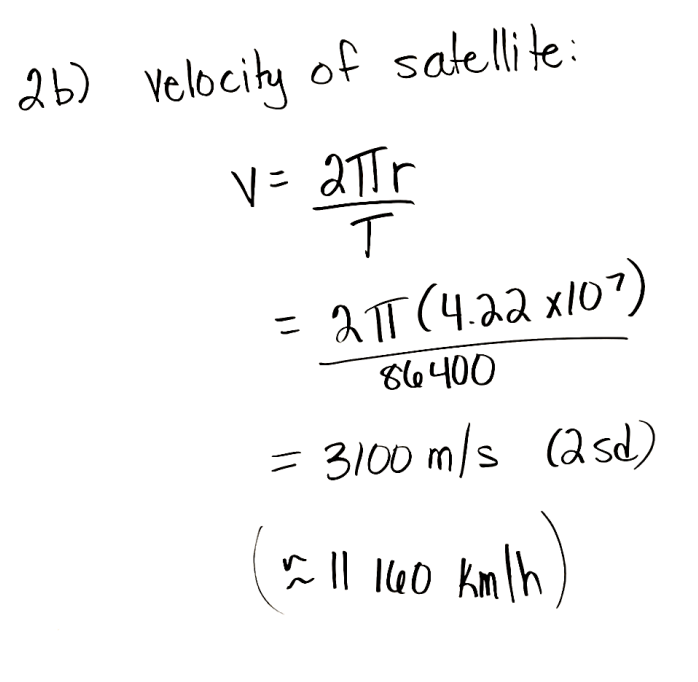 2b) velocity of satellite:
V = 2πr
T
= 2π (4.22 x10⁷)
86400
= 3100 m/s (2sd)
(≈ 11 160 km/h)